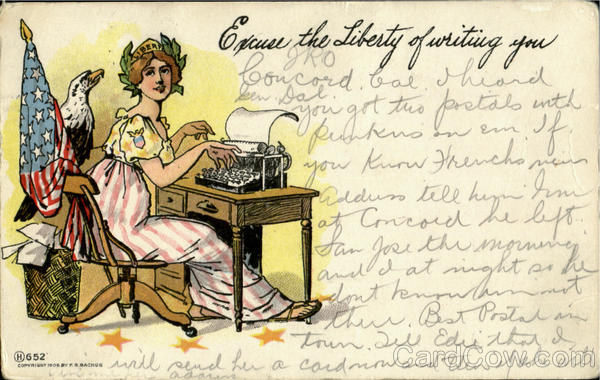 Excuse the Liberty of writing you
LIBERTY
Concord, Cal I heard
Gen Del.
you got two postals with
punkins on em. If
you know Frenchs new
address tell him Im
at Concord he left
San Jose the morning
and I at night so he
dont know am not
there. Best Postal in
town. Tell Edie that I
will send her a card now and
address
H 652
COPYRIGHT 1905 BY F. S. BACKUS
CardCow.com